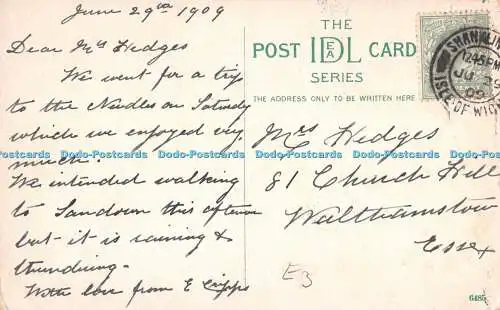 June 29th 1909
Dear Mrs Hedges
We went for a trip
to the Needles on Saturday
which we enjoyed very
much.
We intended walking
to Sandown this afternoon
but it is raining &
thundering.
With love from E Cripps
THE
POST IDEAL CARD
SERIES
THE ADDRESS ONLY TO BE WRITTEN HERE
SHANKLIN
12.45 PM
JU 29
09
ISLE OF WIGHT
Mrs Hedges
81 Church Hill
Walthamstow
Essex
E3
6485
Dodo-Postcards Dodo-Postcards Dodo-Postcards Dodo-Postcards